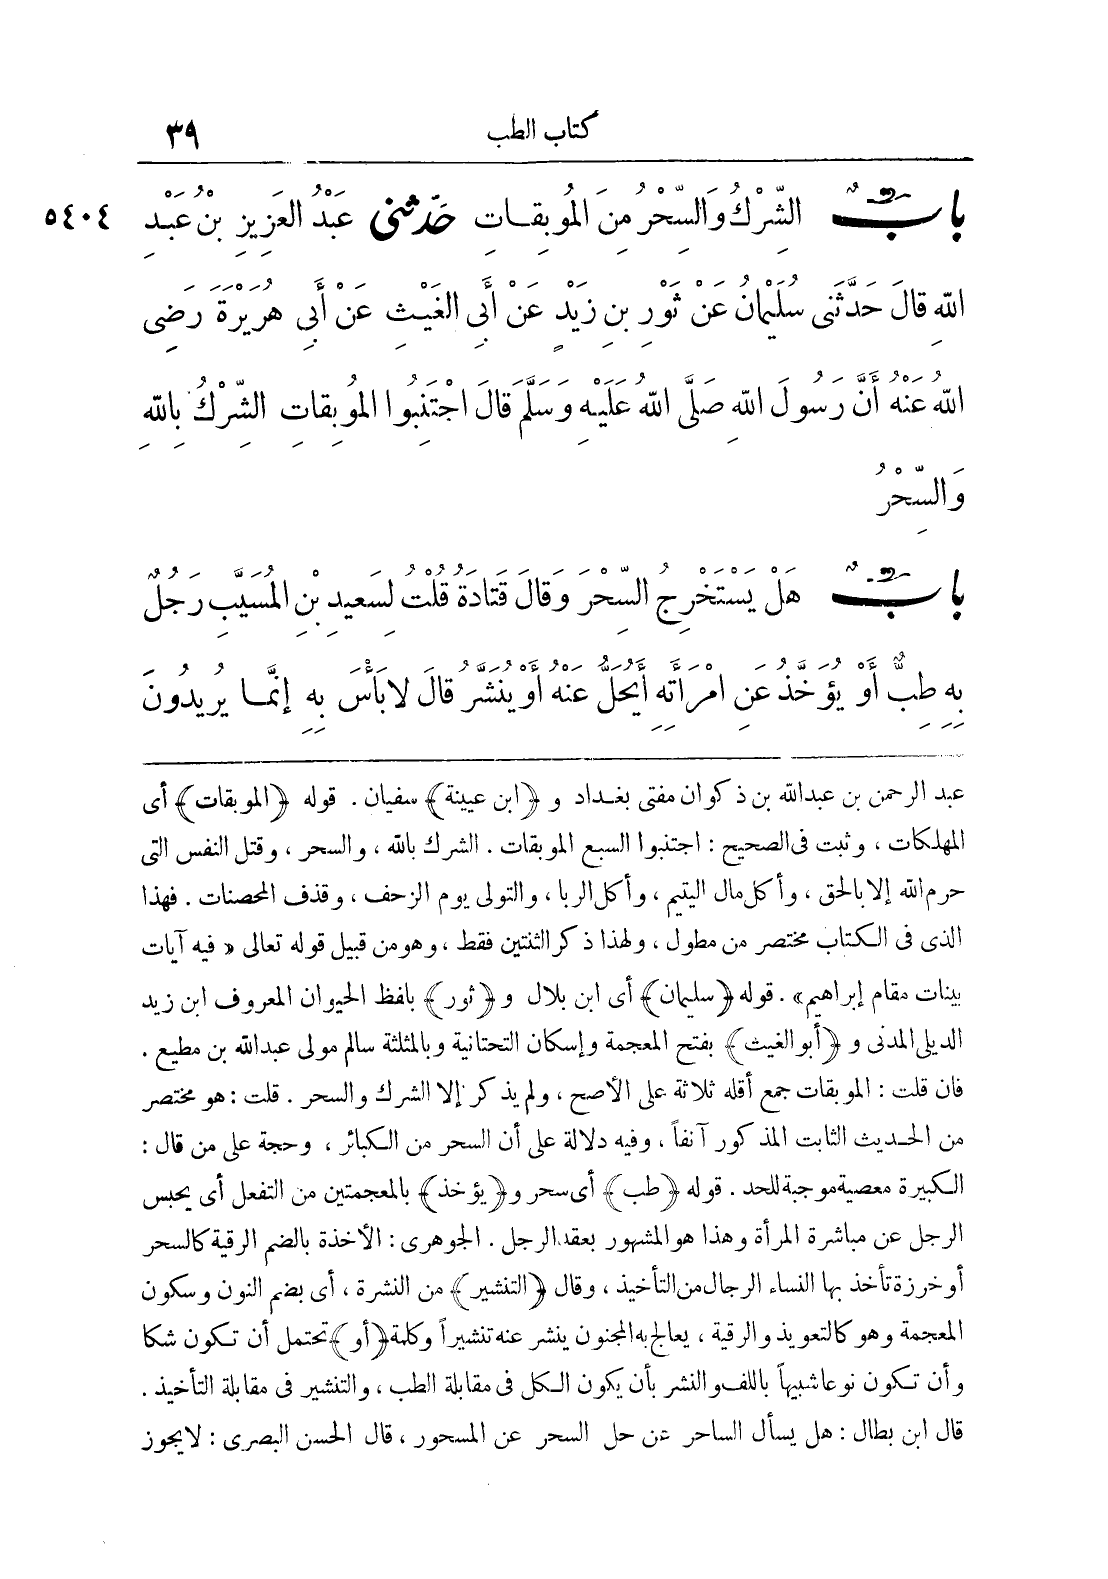 كتاب الطب
٣٩
بَابٌ الشِّرْكُ وَالسِّحْرُ مِنَ الْمُوبِقَاتِ حَدَّثَنِى عَبْدُ الْعَزِيزِ بْنُ عَبْدِ
٥٤٠٤
اللهِ قَالَ حَدَّثَنِى سُلَيْمَانُ عَنْ ثَوْرِ بْنِ زَيْدٍ عَنْ أَبِى الْغَيْثِ عَنْ أَبِى هُرَيْرَةَ رَضِىَ
اللهُ عَنْهُ أَنَّ رَسُولَ اللهِ صَلَّى اللهُ عَلَيْهِ وَسَلَّمَ قَالَ اجْتَنِبُوا الْمُوبِقَاتِ الشِّرْكُ بِاللهِ
وَالسِّحْرُ
بَابٌ هَلْ يَسْتَخْرِجُ السِّحْرَ وَقَالَ قَتَادَةُ قُلْتُ لِسَعِيدِ بْنِ الْمُسَيَّبِ رَجُلٌ
بِهِ طِبٌّ أَوْ يُؤَخَّذُ عَنِ امْرَأَتِهِ أَيُحَلُّ عَنْهُ أَوْ يُنَشَّرُ قَالَ لَا بَأْسَ بِهِ إِنَّمَا يُرِيدُونَ
عبد الرحمن بن عبدالله بن ذكوان مفتى بغداد و ﴿ابن عيينة﴾ سفيان . قوله ﴿الموبقات﴾ أى
المهلكات ، وثبت فى الصحيح : اجتنبوا السبع الموبقات . الشرك بالله ، والسحر ، وقتل النفس التى
حرم الله إلا بالحق ، وأكل مال اليتيم ، وأكل الربا ، والتولى يوم الزحف ، وقذف المحصنات . فهذا
الذى فى الكتاب مختصر من مطول ، ولهذا ذكر الثنتين فقط ، وهو من قبيل قوله تعالى « فيه آيات
بينات مقام إبراهيم» . قوله ﴿سليمان﴾ أى ابن بلال و ﴿ثور﴾ بلفظ الحيوان المعروف ابن زيد
الديلى المدنى و ﴿أبو الغيث﴾ بفتح المعجمة وإسكان التحتانية وبالمثلثة سالم مولى عبدالله بن مطيع .
فان قلت : الموبقات جمع أقله ثلاثة على الأصح ، ولم يذكر إلا الشرك والسحر . قلت : هو مختصر
من الحديث الثابت المذكور آنفاً ، وفيه دلالة على أن السحر من الكبائر ، وحجة على من قال :
الكبيرة معصية موجبة للحد . قوله ﴿طب﴾ أى سحر و﴿يؤخذ﴾ بالمعجمتين من التفعل أى يحبس
الرجل عن مباشرة المرأة وهذا هو المشهور بعقد الرجل . الجوهرى : الأخذة بالضم الرقية كالسحر
أو خرزة تأخذ بها النساء الرجال من التأخيذ ، وقال ﴿التنشير﴾ من النشرة ، أى بضم النون وسكون
المعجمة وهو كالتعويذ والرقية ، يعالج به المجنون ينشر عنه تنشيراً وكلمة ﴿أو﴾ تحتمل أن تكون شكا
وأن تكون نوعا شبيهاً باللف والنشر بأن يكون الكل فى مقابلة الطب ، والتنشير فى مقابلة التأخيذ .
قال ابن بطال : هل يسأل الساحر عن حل السحر عن المسحور ، قال الحسن البصرى : لا يجوز